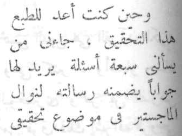 وحين كنت أعد للطبع
هذا التحقيق ، جاءني من
يسألني سبعة أسئلة يريد لها
جواباً يضمنه رسالته لنوال
الماجستير في موضوع تحقيق